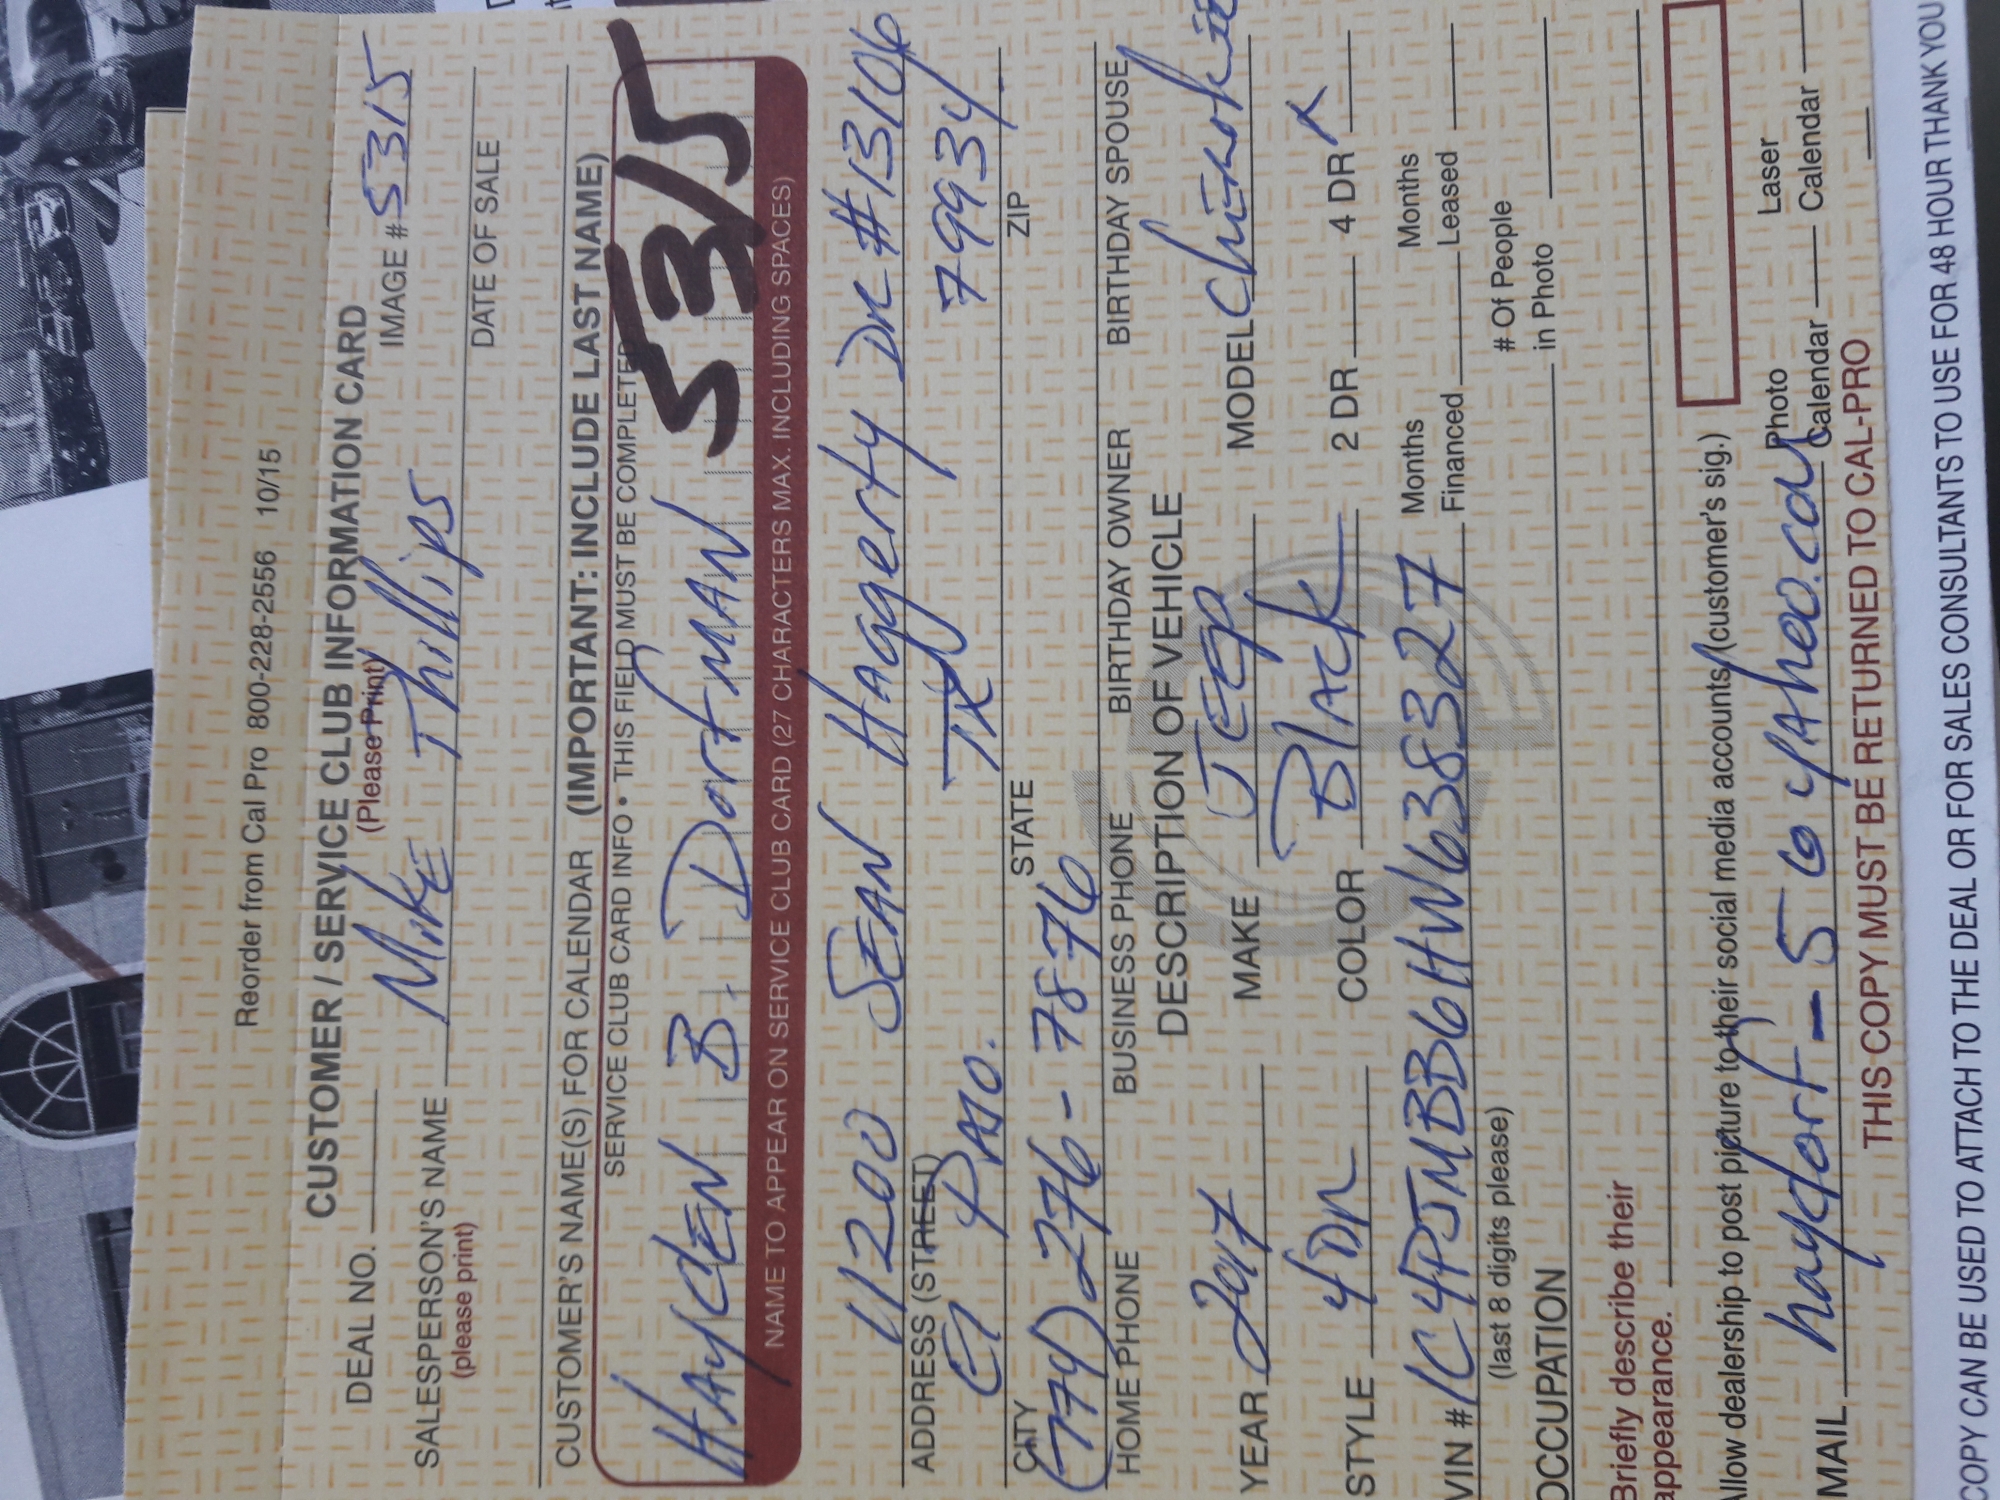 Reorder from Cal Pro 800-228-2556 10/15
CUSTOMER / SERVICE CLUB INFORMATION CARD
(Please Print)
DEAL NO. IMAGE # 5315
SALESPERSON'S NAME MIKE Phillips DATE OF SALE
(please print)
CUSTOMER'S NAME(S) FOR CALENDAR (IMPORTANT: INCLUDE LAST NAME)
SERVICE CLUB CARD INFO • THIS FIELD MUST BE COMPLETED
HAYdEN B. DortMAN 5315
NAME TO APPEAR ON SERVICE CLUB CARD (27 CHARACTERS MAX. INCLUDING SPACES)
11200 SEAN HAggerty DR #1306
ADDRESS (STREET)
El PASO. TX 79934
CITY STATE ZIP
(774) 276-7876
HOME PHONE BUSINESS PHONE BIRTHDAY OWNER BIRTHDAY SPOUSE
DESCRIPTION OF VEHICLE
YEAR 2017 MAKE JEEP MODEL
STYLE 4DR COLOR BlACK 2 DR 4 DR X
VIN # 1C4PJMBB6HW638327 Months Financed Months Leased
(last 8 digits please)
OCCUPATION # Of People in Photo
Briefly describe their
appearance.
Allow dealership to post picture to their social media accounts (customer's sig.)
MAIL Photo Calendar Laser Calendar
THIS COPY MUST BE RETURNED TO CAL-PRO
COPY CAN BE USED TO ATTACH TO THE DEAL OR FOR SALES CONSULTANTS TO USE FOR 48 HOUR THANK YOU